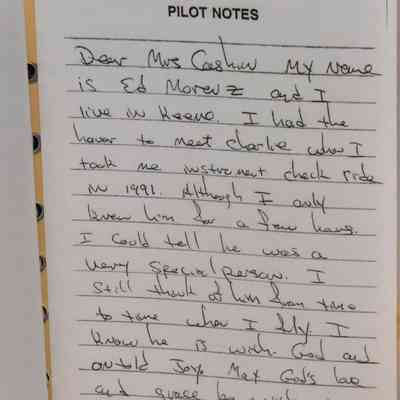 PILOT NOTES
Dear Mrs Cashin My Name
is Ed Morenz and I
live in Keene. I had the
honor to meet charlie when I
took me instrument check ride
in 1991. Although I only
knew him for a few hours.
I could tell he was a
very special person. I
still think of him from time
to time when I fly. I
know he is with God and
untold Joys May God's love
and grace be with